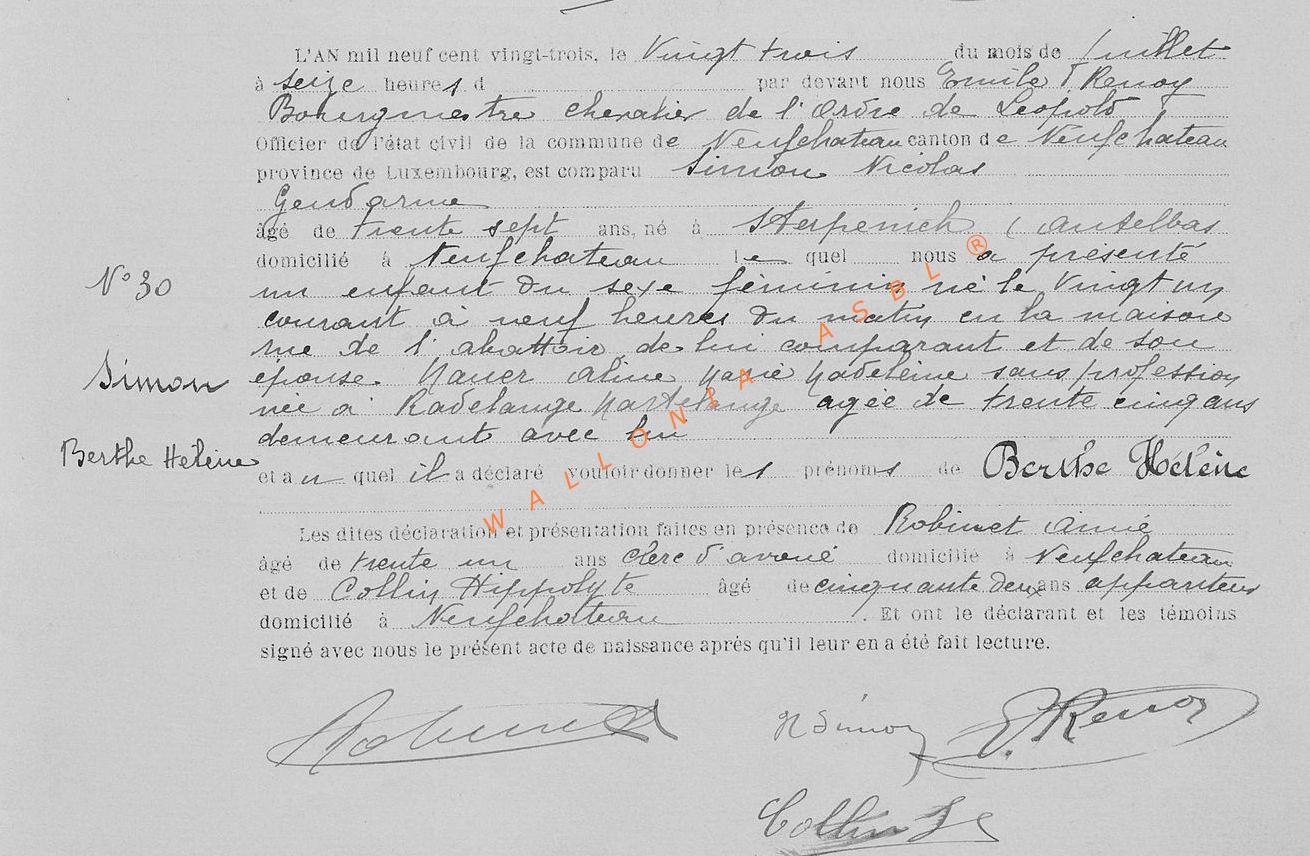 L'AN mil neuf cent vingt-trois, le Vingt trois du mois de Juillet
à seize heures d par devant nous Emile Renoy
Bourgmestre chevalier de l'Ordre de Léopold
Officier de l'état civil de la commune de Neufchateau canton de Neufchateau
province de Luxembourg, est comparu Simon Nicolas
Gendarme
âgé de trente sept ans, né à Sterpenich (Autelbas
domicilié à Neufchateau le quel nous a présenté
N° 30
un enfant du sexe féminin né le Vingt un
courant à neuf heures du matin en la maison
rue de l'abattoir de lui comparant et de son
Simon
épouse Maner Aline Marie Madeleine sans profession
née à Radelange Martelange agée de trente cinq ans
demeurant avec lui
Berthe Hélène
et au quel il a déclaré vouloir donner les prénoms de Berthe Hélène
Les dites déclaration et présentation faites en présence de Robinet Aimé
âgé de trente un ans clerc d'avoué domicilié à Neufchateau
et de Collin Hippolyte âgé de cinquante deux ans appariteur
domicilié à Neufchateau. Et ont le déclarant et les témoins
signé avec nous le présent acte de naissance après qu'il leur en a été fait lecture.
Robinet N Simon E. Renoy
Collin
WALLONIA ASBL ®